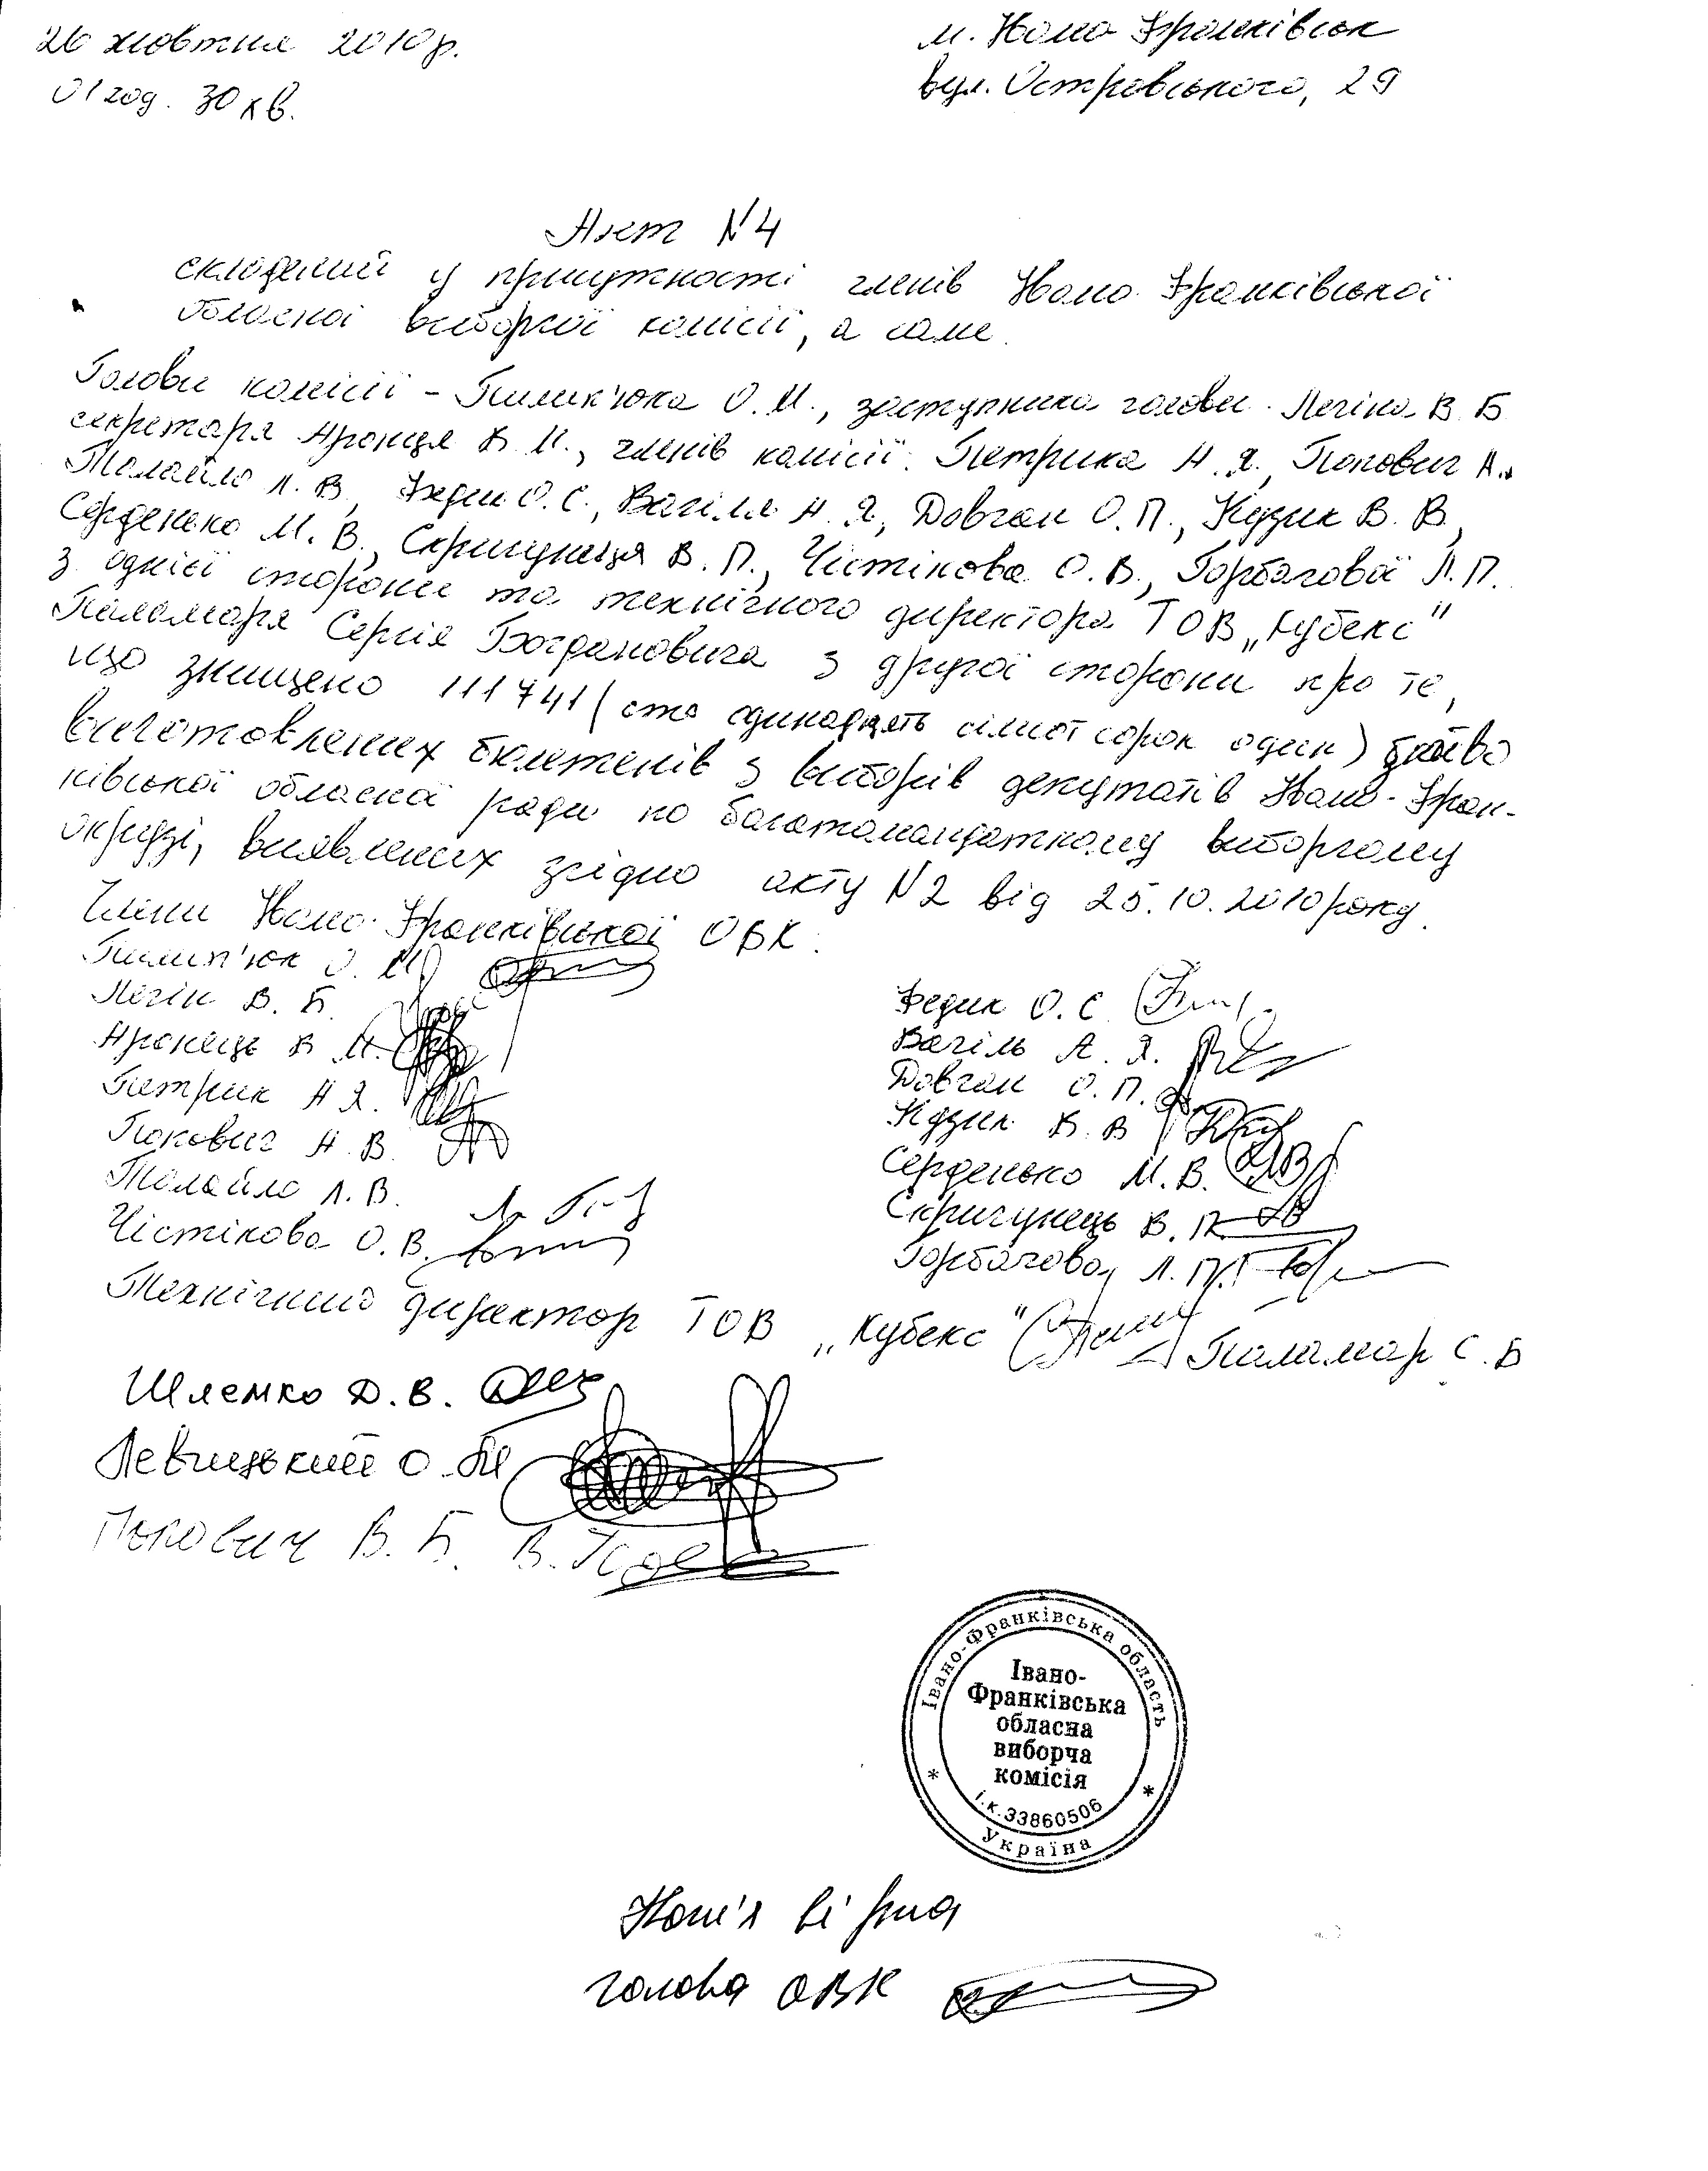 26 жовтня 2010р.
01 год. 30 хв.
м. Івано-Франківськ
вул. Островського, 29
Акт №4
складений у присутності членів Івано-Франківської
обласної виборчої комісії, а саме
Голови комісії – Пилип'юка О.М., заступника голови - Легіна В.Б
секретаря Яронця В.М., членів комісії: Петрика А.Я., Попович А.
Малайло Л.В., Федик О.С., Вагіля А.Я., Довган О.П., Кузик В.В.,
Серденько М.В., Скрипунця В.П., Чістікова О.В., Горбачової Л.П.
з однієї сторони та технічного директора ТОВ „Кубекс"
Паламаря Сергія Богдановича з другої сторони про те,
що знищено 111741 (сто одинадцять сімсот сорок один)
виготовлених бюлетенів з виборів депутатів Івано-Фран-
ківської обласної ради по багатомандатному виборчому
окрузі, виявлених згідно акту №2 від 25.10.2010 року.
Члени Івано-Франківської ОВК:
Пилип'юк О.М.
Легін В.Б.
Яронець В.М.
Петрик А.Я.
Попович А.В.
Малайло Л.В.
Чістікова О.В.
Федик О.С
Вагіль А.Я.
Довган О.П.
Кузик В.В
Серденько М.В.
Скрипунець В.П.
Горбачова Л.П.
Технічний директор ТОВ „Кубекс" Паламар С.Б
Шлемко Д.В.
Левицький О.
Попович В.Б.
Івано-Франківська область
Івано-
Франківська
обласна
виборча
комісія
і.к.33860506
Україна
Копія вірна
голова ОВК